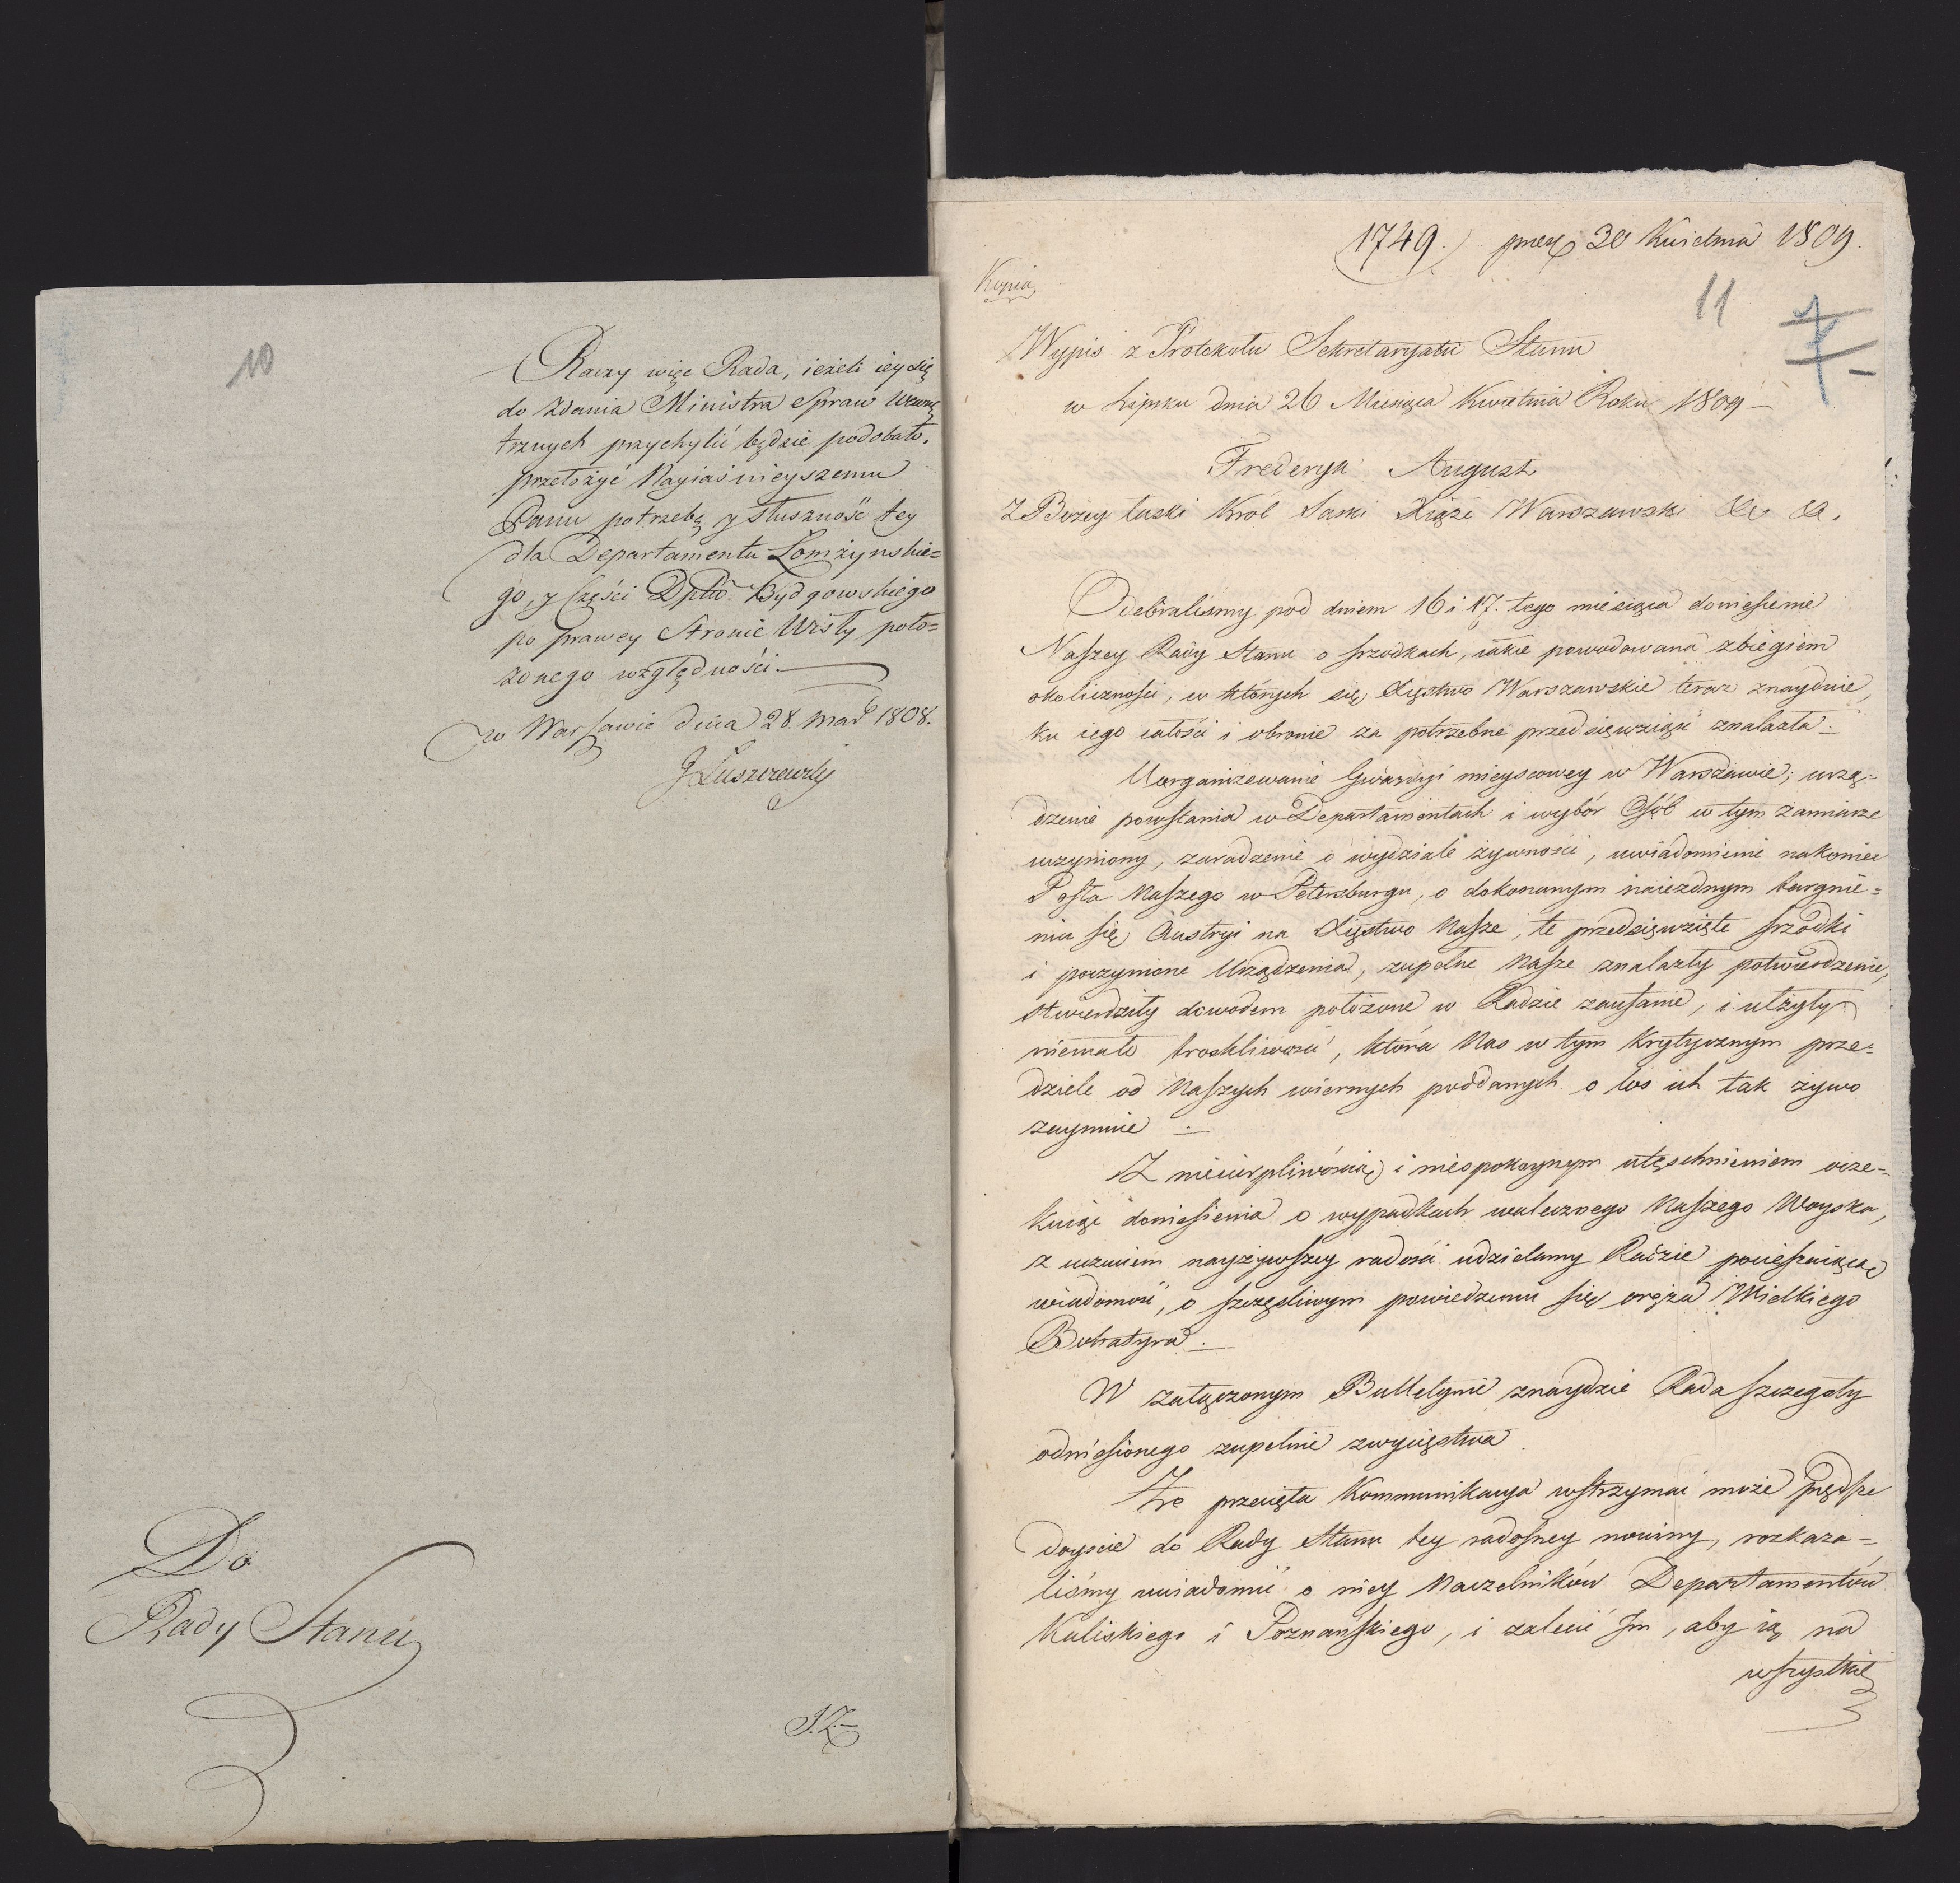 10
Raczy więc Rada, ieżeli iey się
do Zdania Ministra Spraw Wewnę
trznych przychylić będzie podobało,
przełożyć Nayiaśnieyszemu
Panu potrzebę y słuszność tey
dla Departamentu Łomżyńskie=
go, y Części Dpttu Bydgowskiego
po prawey Stronie Wisły poło=
żonego względności.
w Warszawie dnia 28. Mar 1808.
J Łuszczewski
Do
Rady Stanu
1749. prez 30 Kwietnia 1809.
Kopia,
11
Wypis z Protokołu Sekretaryatu Stanu
w Lipsku dnia 26 Miesiąca Kwietnia Roku 1809 –
Frederyk August
Z Bożey łaski Król Saski Xiąże Warszawski &c &c.
Odebraliśmy pod dniem 16 i 17. tego miesiąca doniesienie
Naszey Rady Stanu o srzodkach, iakie powodowana zbiegiem
okoliczności, w których się Xięstwo Warszawskie teraz znayduie,
ku iego całości i obronie za potrzebne przedsięwziąć znalazła.
Uorganizowanie Gwardyi mieyscowey w Warszawie; urzą=
dzenie powstania w Departamentach i wybór Osób w tym zamiarze
uczyniony, zaradzenie o wydziale żywności, uwiadomienie nakoniec
Posła Naszego w Petersburgu, o dokonanym naiezdnym targnie=
niu się Austryi na Xięstwo Nasze, te przedsięwzięte srzodki
i poczynione Urządzenia, zupełne Nasze znalazły potwierdzenie,
stwierdziły dowodem położone w Radzie zaufanie, i ulżyły
niemało troskliwości, która Nas w tym krytycznym prze=
dziele od Naszych wiernych poddanych o los ich tak żywo
zaymuie.
Z niecierpliwością i niespokoynym utęschnieniem ocze=
kuiąc doniesienia o wypadkach walecznego Naszego Woyska,
z uczuciem nayżywszey radości udzielamy Radzie pocieszaiącą
wiadomość, o szczęśliwym powiedzeniu się oręża Wielkiego
Bohatyra.
W załączonym Bulletynie znaydzie Rada szczegóły
odniesionego zupełnie zwycięstwa.
Że przecięta Kommunikacya wstrzymać może prędsze
doyście do Rady Stanu tey radosney nowiny, rozkaza=
liśmy uwiadomić o niey Naczelników Departamentów
Kaliskiego i Poznańskiego, i zalecić Im, aby ią na
wszystkie